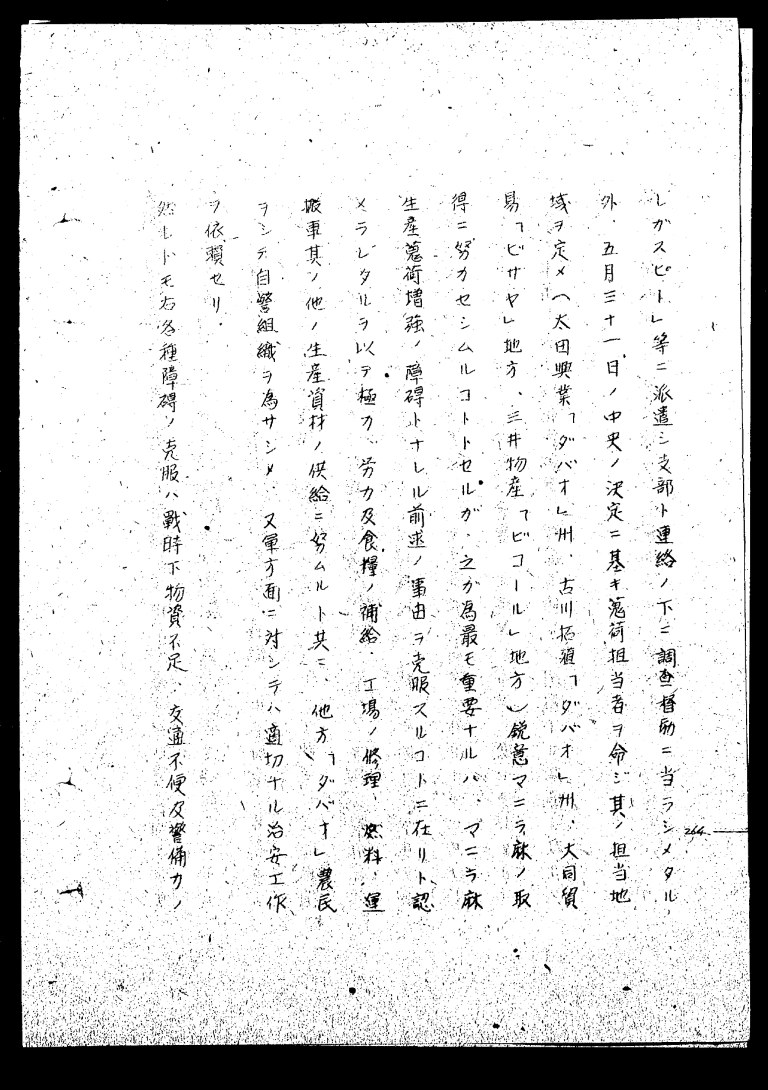 レガスピト」等ニ派遣シ支部ト連絡ノ下ニ調査督励ニ当ラシメタル
外、五月三十一日ノ中央ノ決定ニ基キ蒐荷担当者ヲ命ジ其ノ担当地
域ヲ定メ(太田興業「ダバオ」州、古川拓殖「ダバオ」州、大同貿
易「ビサヤ」地方、三井物産「ビコール」地方)鋭意マニラ麻ノ取
得ニ努力セシムルコトトセルガ、之ガ為最モ重要ナルハ、マニラ麻
生産蒐荷増強ノ障碍トナレル前述ノ事由ヲ克服スルコトニ在リト認
メラレタルヲ以テ極力、労力及食糧ノ補給、工場ノ修理、燃料、運
搬車其ノ他ノ生産資材ノ供給ニ努ムルト共ニ、他方「ダバオ」農民
ヲシテ自警組織ヲ為サシメ、又軍方面ニ対シテハ適切ナル治安工作
ヲ依頼セリ、
然レドモ右各種障碍ノ克服ハ戰時下物資不足、交通不便及警備力ノ
264